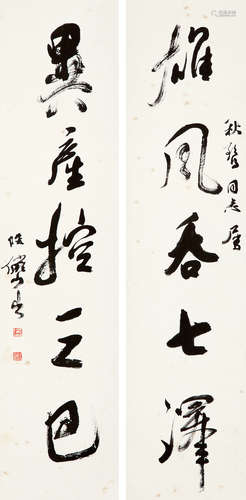 雄风吞七澤
秋同志屬
異產控三巴
陸儼少